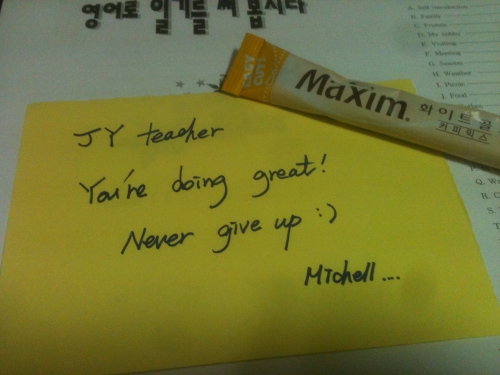 영어로 일기를 써 봅시다
A. Self introduction
B. Family
C. Friends
D. My hobby
E. Visiting
F. Meeting
G. Season
H. Weather
I. Picnic
J. Food
EASY CUT
Maxim
화이트골
커피믹스
JY teacher
You're doing great!
Never give up :)
Michell....